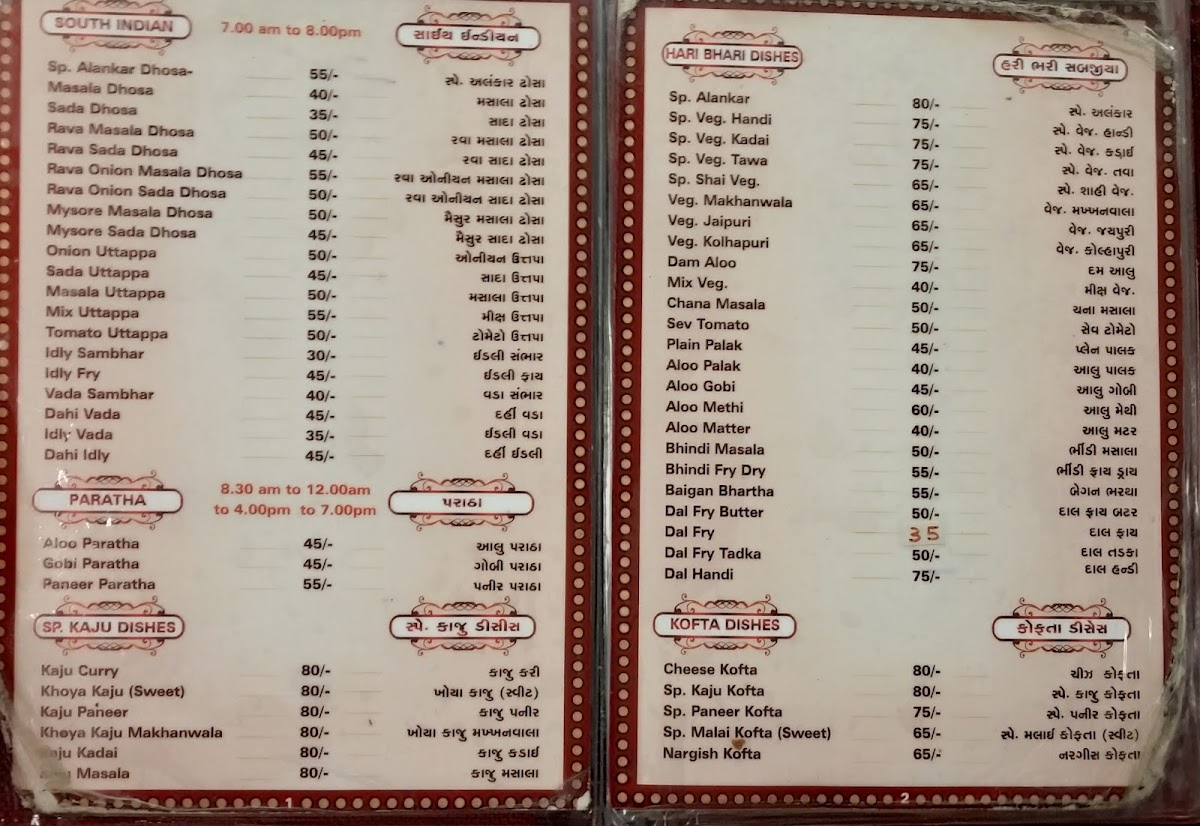 SOUTH INDIAN 7.00 am to 8.00pm સાઈથ ઈન્ડીયન
Sp. Alankar Dhosa- 55/- સ્પે. અલંકાર ઢોસા
Masala Dhosa 40/- મસાલા ઢોસા
Sada Dhosa 35/- સાદા ઢોસા
Rava Masala Dhosa 50/- રવા મસાલા ઢોસા
Rava Sada Dhosa 45/- રવા સાદા ઢોસા
Rava Onion Masala Dhosa 55/- રવા ઓનીયન મસાલા ઢોસા
Rava Onion Sada Dhosa 50/- રવા ઓનીયન સાદા ઢોસા
Mysore Masala Dhosa 50/- મૈસુર મસાલા ઢોસા
Mysore Sada Dhosa 45/- મૈસુર સાદા ઢોસા
Onion Uttappa 50/- ઓનીયન ઉત્તપા
Sada Uttappa 45/- સાદા ઉત્તપા
Masala Uttappa 50/- મસાલા ઉત્તપા
Mix Uttappa 55/- મીક્ષ ઉત્તપા
Tomato Uttappa 50/- ટોમેટો ઉત્તપા
Idly Sambhar 30/- ઈડલી સંભાર
Idly Fry 45/- ઈડલી ફ્રાય
Vada Sambhar 40/- વડા સંભાર
Dahi Vada 45/- દહીં વડા
Idly Vada 35/- ઈડલી વડા
Dahi Idly 45/- દહીં ઈડલી
PARATHA 8.30 am to 12.00am પરાઠા
to 4.00pm to 7.00pm
Aloo Paratha 45/- આલુ પરાઠા
Gobi Paratha 45/- ગોબી પરાઠા
Paneer Paratha 55/- પનીર પરાઠા
SP. KAJU DISHES સ્પે. કાજુ ડીસીસ
Kaju Curry 80/- કાજુ કરી
Khoya Kaju (Sweet) 80/- ખોયા કાજુ (સ્વીટ)
Kaju Paneer 80/- કાજુ પનીર
Khoya Kaju Makhanwala 80/- ખોયા કાજુ મખ્ખનવાલા
Kaju Kadai 80/- કાજુ કડાઈ
Masala 80/- કાજુ મસાલા
1
HARI BHARI DISHES હરી ભરી સબજીયા
Sp. Alankar 80/- સ્પે. અલંકાર
Sp. Veg. Handi 75/- સ્પે. વેજ. હાન્ડી
Sp. Veg. Kadai 75/- સ્પે. વેજ. કડાઈ
Sp. Veg. Tawa 75/- સ્પે. વેજ. તવા
Sp. Shai Veg. 65/- સ્પે. શાહી વેજ.
Veg. Makhanwala 65/- વેજ. મખ્ખનવાલા
Veg. Jaipuri 65/- વેજ. જયપુરી
Veg. Kolhapuri 65/- વેજ. કોલ્હાપુરી
Dam Aloo 75/- દમ આલુ
Mix Veg. 40/- મીક્ષ વેજ.
Chana Masala 50/- ચના મસાલા
Sev Tomato 50/- સેવ ટોમેટો
Plain Palak 45/- પ્લેન પાલક
Aloo Palak 40/- આલુ પાલક
Aloo Gobi 45/- આલુ ગોબી
Aloo Methi 60/- આલુ મેથી
Aloo Matter 40/- આલુ મટર
Bhindi Masala 50/- ભીંડી મસાલા
Bhindi Fry Dry 55/- ભીંડી ફ્રાય ડ્રાય
Baigan Bhartha 55/- બેગન ભરથા
Dal Fry Butter 50/- દાલ ફ્રાય બટર
Dal Fry 35 દાલ ફ્રાય
Dal Fry Tadka 50/- દાલ તડકા
Dal Handi 75/- દાલ હન્ડી
KOFTA DISHES કોફતા ડીસેસ
Cheese Kofta 80/- ચીઝ કોફતા
Sp. Kaju Kofta 80/- સ્પે. કાજુ કોફતા
Sp. Paneer Kofta 75/- સ્પે. પનીર કોફતા
Sp. Malai Kofta (Sweet) 65/- સ્પે. મલાઈ કોફતા (સ્વીટ)
Nargish Kofta 65/- નરગીસ કોફતા
2